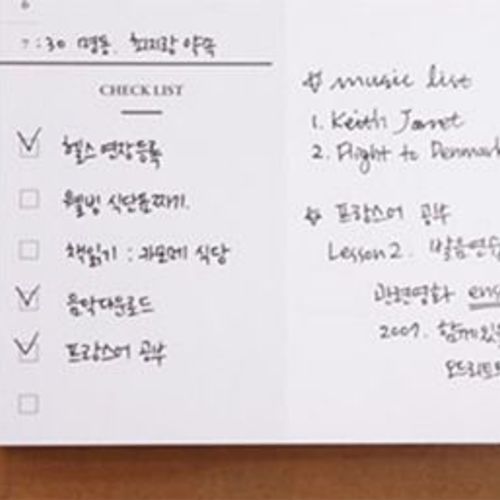 6
7:30 명동. 최지랑 약속
CHECK LIST
헬스 연장등록
웰빙 식단표짜기.
책읽기 : 카모메 식당
음악다운로드
프랑스어 공부
✩ music list
1. Keith Jarret
2. Flight to Denmark
✩ 프랑스어 공부
Lesson 2. 발음연습
관련영화 ens
2007. 함께있
오드리토